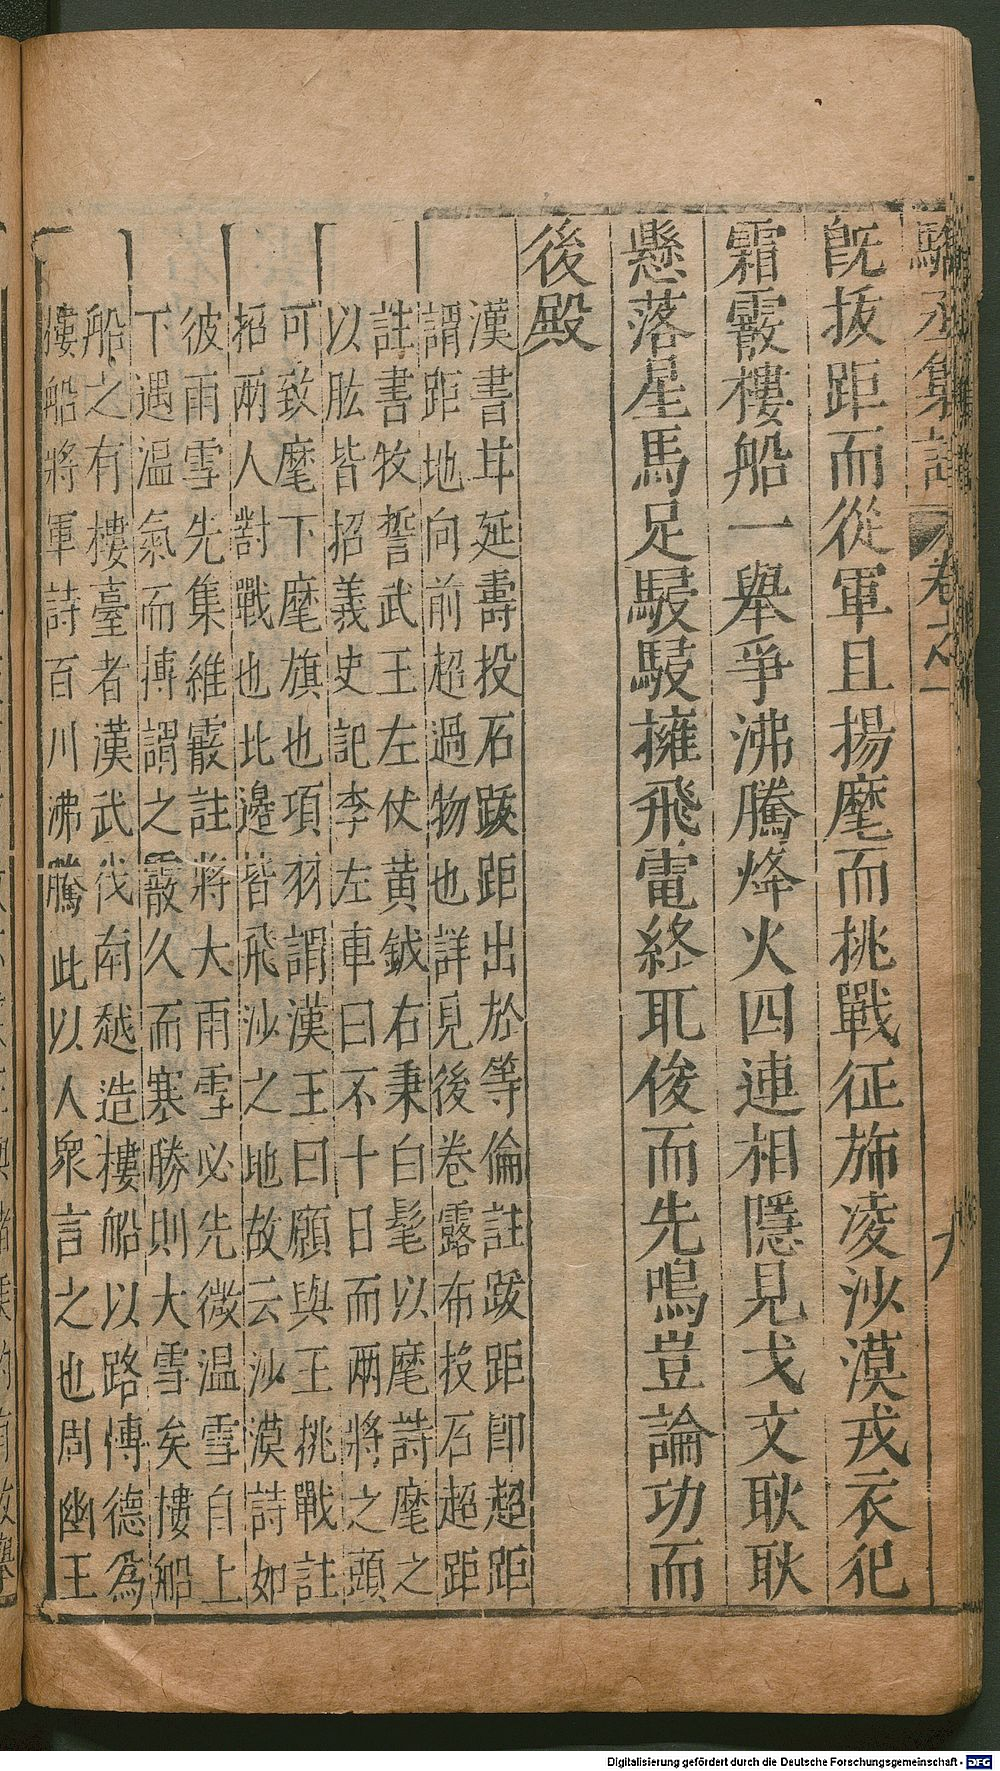 駱丞集註 卷之一 九
旣拔距而從軍且揚麾而挑戰征旆凌沙漠戎衣犯
霜霰樓船一舉爭沸騰烽火四連相隱見戈文耿耿
懸落星馬足駸駸擁飛電終取俊而先鳴豈論功而
後殿
漢書甘延壽投石䟦距出於等倫註䟦距即超距
謂距地向前超過物也詳見後卷露布投石超距
註書牧誓武王左仗黄鉞右秉白髦以麾詩麾之
以肱皆招義史記李左車曰不十日而兩將之頭
可致麾下麾旗也項羽謂漢王曰願與王挑戰註
招兩人對戰也北邊皆飛沙之地故云沙漠詩如
彼雨雪先集維霰註將大雨雪必先微温雪自上
下遇温氣而摶謂之霰久而寒勝則大雪矣樓船
船之有樓臺者漢武伐南越造樓船以路博德為
樓船將軍詩百川沸騰此以人衆言之也周幽王
Digitalisierung gefördert durch die Deutsche Forschungsgemeinschaft - DFG